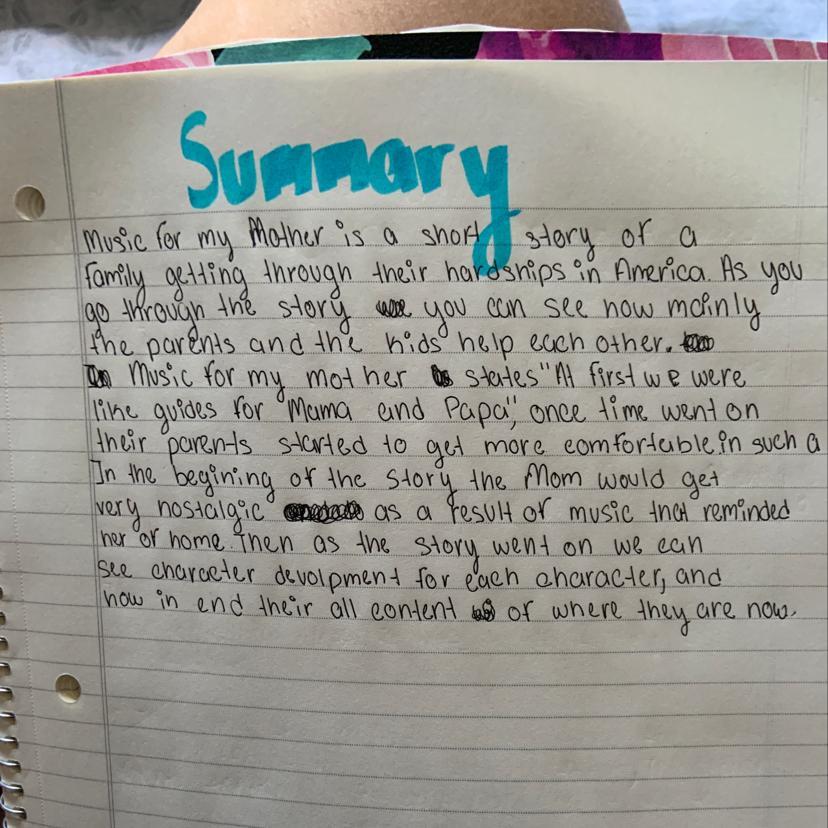 Summary
Music for my Mother is a short story of a
family getting through their hardships in America. As you
go through the story you can see how mainly
the parents and the kids help each other.
Music for my mother states "At first we were
like guides for Mama and Papa", once time went on
their parents started to get more comfortable, in such a
In the begining of the story the Mom would get
very nostalgic as a result of music that reminded
her of home. Then as the story went on we can
see character devolpment for each character, and
how in end their all content of where they are now.